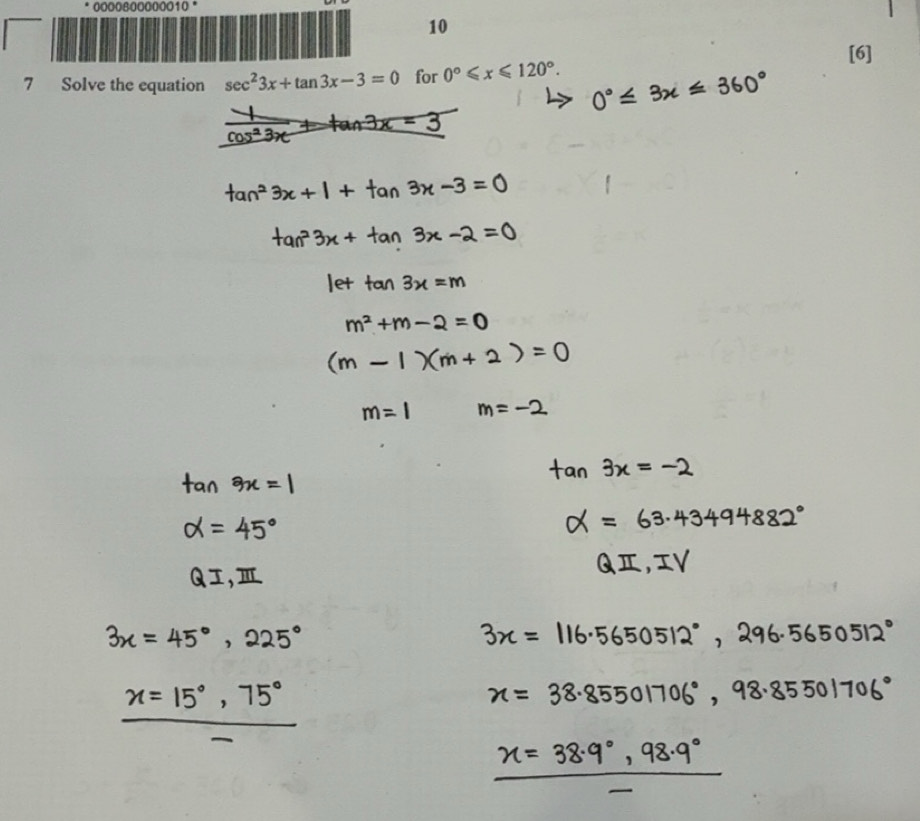 * 0000800000010 *
10
7 Solve the equation sec²3x + tan 3x − 3 = 0 for 0° ⩽ x ⩽ 120°.
[6]
↳ 0° ≤ 3x ≤ 360°
1/cos² 3x + tan 3x = 3
tan² 3x + 1 + tan 3x − 3 = 0
tan² 3x + tan 3x − 2 = 0
let tan 3x = m
m² + m − 2 = 0
(m − 1)(m + 2) = 0
m = 1 m = −2
tan 3x = 1
α = 45°
QI, III
3x = 45°, 225°
x = 15°, 75°
tan 3x = −2
α = 63.43494882°
QII, IV
3x = 116.5650512°, 296.5650512°
x = 38.85501706°, 98.85501706°
x = 38.9°, 98.9°